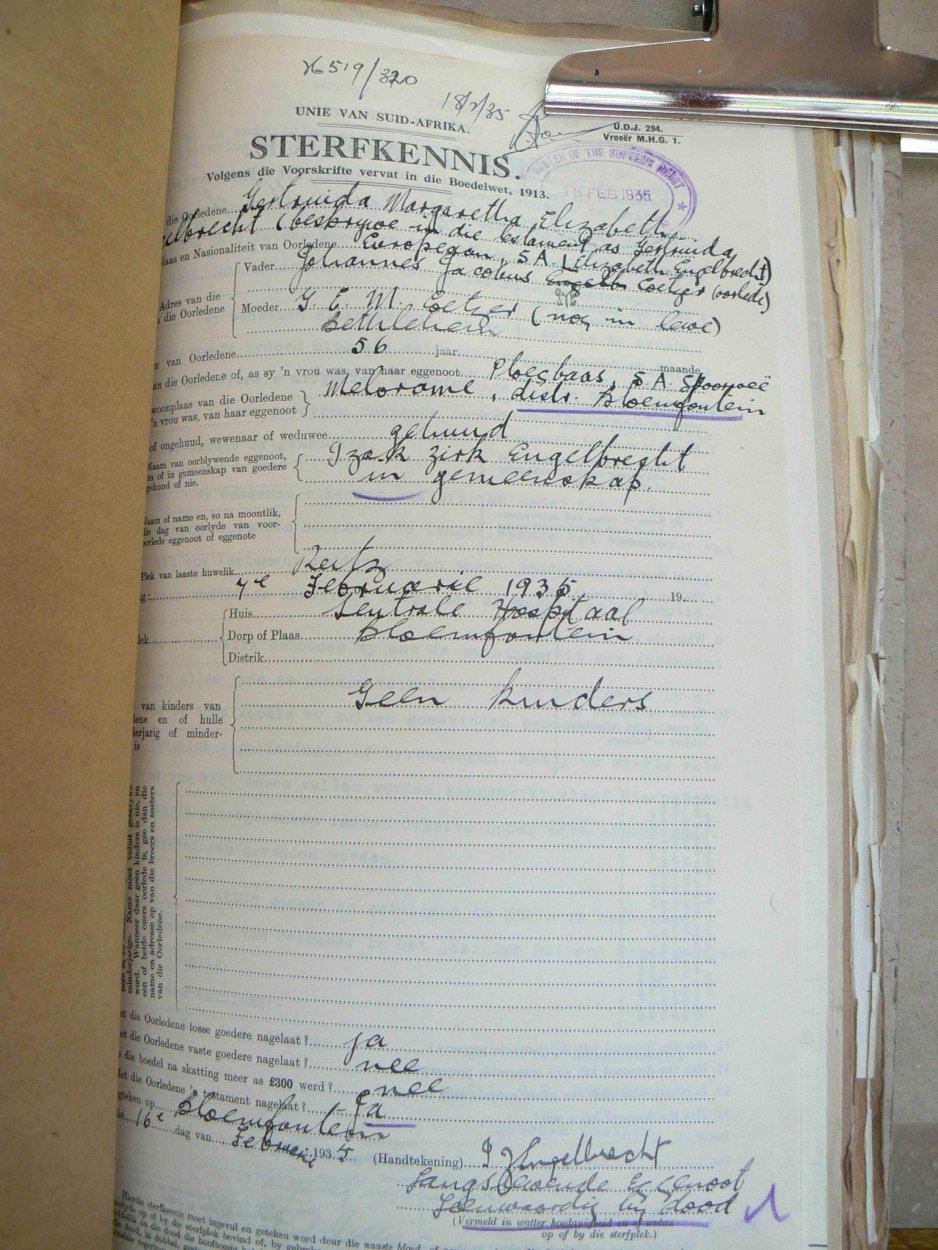 26519/320
18/2/35
UNIE VAN SUID-AFRIKA.
U.D.J. 294.
Vroeër M.H.G. 1.
STERFKENNIS.
Volgens die Voorskrifte vervat in die Boedelwet, 1913.
MASTER OF THE SUPREME COURT
18 FEB 1935
die Oorledene Gertruida Margaretha Elizabeth
Engelbrecht (beskrywe in die testament as Gertruida
Elizabeth Engelbrecht)
plaas en Nasionaliteit van Oorledene European, S.A.
Adres van die
die Oorledene
Vader Johannes Jacobus Coetzer (oorlede)
Moeder G. E. M. Coetzer (nog in lewe)
Bethlehem
van Oorledene 56 jaar maande
van die Oorledene of, as sy 'n vrou was, van haar eggenoot Ploegbaas, S A Spoorweë
woonplaas van die Oorledene
'n vrou was, van haar eggenoot
Melorame, distr. Bloemfontein
of ongehuud, wewenaar of weduwee getuud
Naam van oorblywende eggenoot,
en of in gemeenskap van goedere
gehuud of nie.
Izak Zirk Engelbrecht
in gemeenskap.
Naam of name en, so na moontlik,
die dag van oorlyde van voor-
oorlede eggenoot of eggenote
Plek van laaste huwelik Reitz
7de Februarie 1935 19
Huis Sentrale Hospitaal
Dorp of Plaas Bloemfontein
Distrik
van kinders van
dene en of hulle
derjarig of minder-
is
Geen kinders
minderjarige. Name moet voluit geskrywe
word. Wanneer daar geen kinders is nie, en
een of beide ouers oorlede is, gee dan die
name en adresse op van die broers en susters
van die Oorledene.
die Oorledene losse goedere nagelaat? ja
die Oorledene vaste goedere nagelaat? nee
die boedel na skatting meer as £300 werd? nee
Het die Oorledene 'n testament nagelaat? Ja
geteken op Bloemfontein
16e dag van Februarie 1935
(Handtekening) I Z Engelbrecht
Langslewende Eggenoot
Teenwoordig by dood
(Vermeld in watter hoedanigheid en of aldus
op of by die sterfplek.)
Hierdie sterfkennis moet ingevul en geteken word deur die naaste bloed-